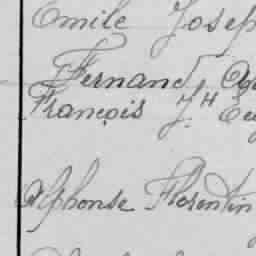 Emile Josep
Fernand
François J.H Eu
Alphonse Florentin